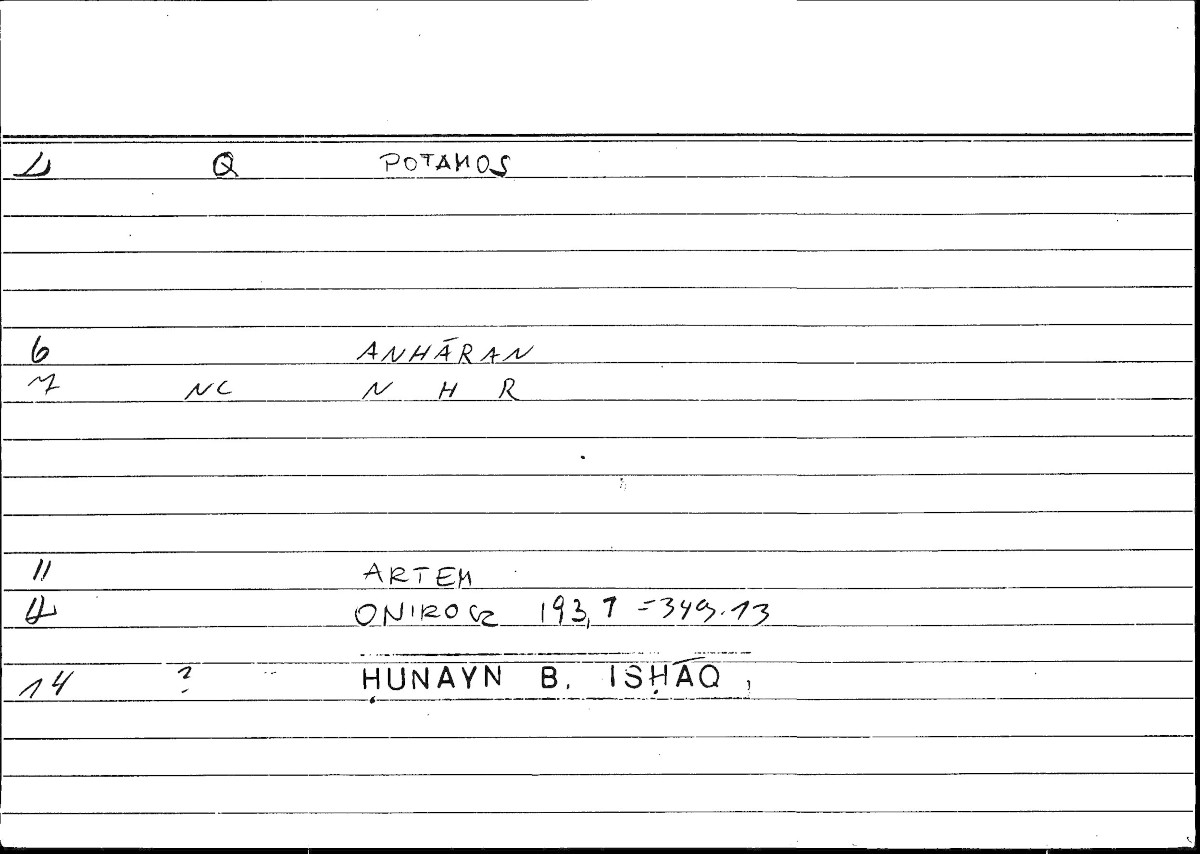 1 Q POTAMOS
6 ANHĀRAN
7 NC N H R
11 ARTEM
12 ONIROCR 193,7 = 349.13
14 ? ḤUNAYN B. ISḤĀQ,